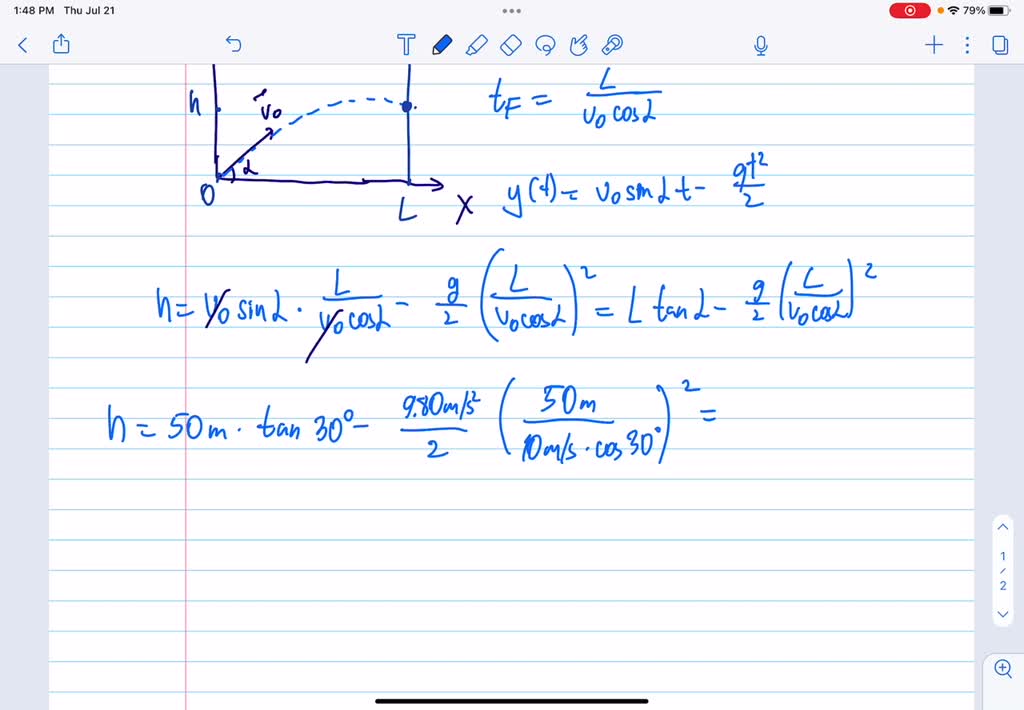 1:48 PM Thu Jul 21
79%
T
h
v₀
α
O
L
X
t_F = L/(v₀ cos α)
y(t) = v₀ sin α t - gt²/2
h = v₀ sin α · L/(v₀ cos α) - g/2 (L/(v₀ cos α))² = L tan α - g/2 (L/(v₀ cos α))²
h = 50m · tan 30° - 9.80m/s²/2 (50m/(10m/s · cos 30°))² =
1
/
2